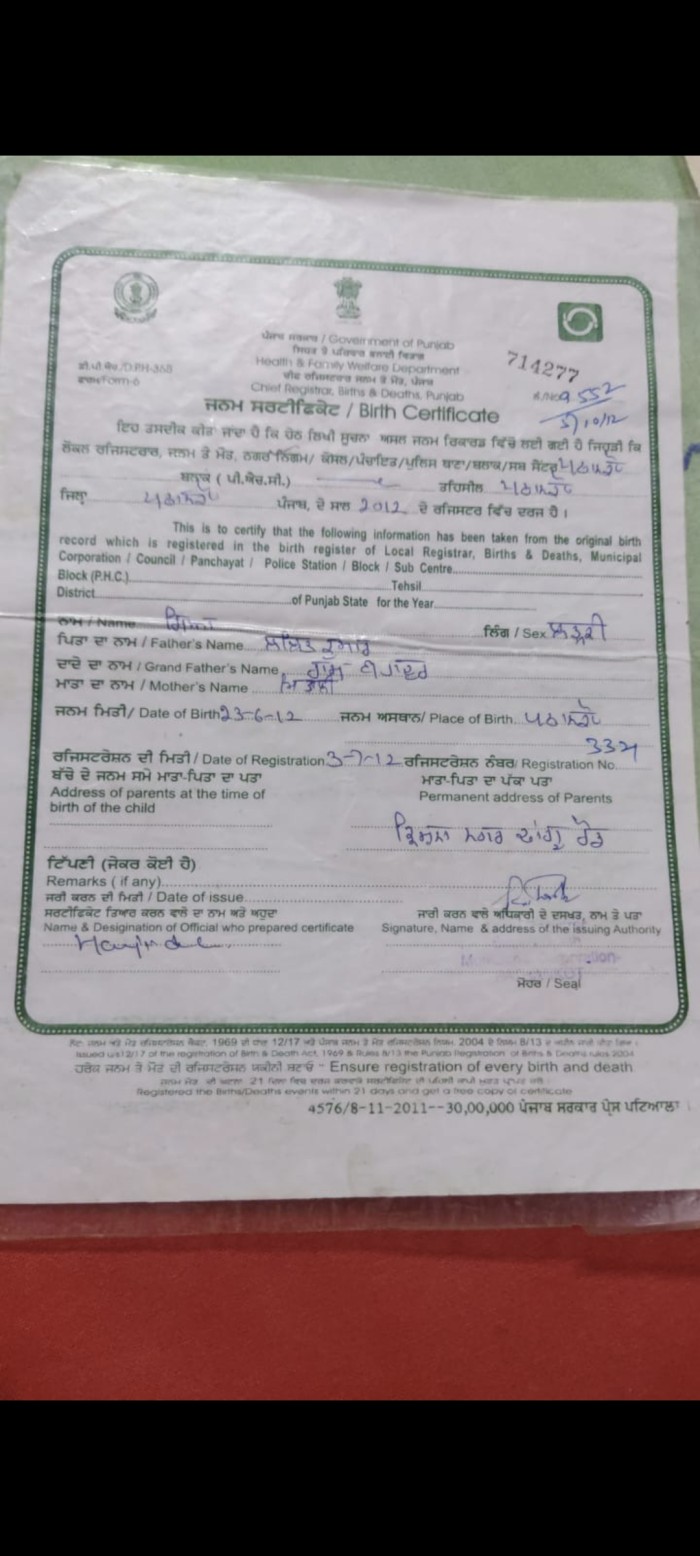 ਪੰਜਾਬ ਸਰਕਾਰ / Government of Punjab
ਸਿਹਤ ਤੇ ਪਰਿਵਾਰ ਭਲਾਈ ਵਿਭਾਗ
Health & Family Welfare Department
ਚੀਫ ਰਜਿਸਟਰਾਰ ਜਨਮ ਤੇ ਮੌਤ, ਪੰਜਾਬ
Chief Registrar, Births & Deaths, Punjab
714277
9552
5/10/12
Form-6
ਜਨਮ ਸਰਟੀਫਿਕੇਟ / Birth Certificate
ਇਹ ਤਸਦੀਕ ਕੀਤਾ ਜਾਂਦਾ ਹੈ ਕਿ ਹੇਠ ਲਿਖੀ ਸੂਚਨਾ ਅਸਲ ਜਨਮ ਰਿਕਾਰਡ ਵਿੱਚੋਂ ਲਈ ਗਈ ਹੈ ਜਿਹੜੀ ਕਿ
ਲੋਕਲ ਰਜਿਸਟਰਾਰ, ਜਨਮ ਤੇ ਮੌਤ, ਨਗਰ ਨਿਗਮ/ ਕੌਂਸਲ/ਪੰਚਾਇਤ/ਪੁਲਿਸ ਥਾਣਾ/ਬਲਾਕ/ਸਬ ਸੈਂਟਰ ਪਠਾਨਕੋਟ
ਬਲਾਕ ( ਪੀ.ਐਚ.ਸੀ.) ਤਹਿਸੀਲ ਪਠਾਨਕੋਟ
ਜਿਲ੍ਹਾ ਪਠਾਨਕੋਟ ਪੰਜਾਬ, ਦੇ ਸਾਲ 2012 ਦੇ ਰਜਿਸਟਰ ਵਿੱਚ ਦਰਜ ਹੈ ।
This is to certify that the following information has been taken from the original birth
record which is registered in the birth register of Local Registrar, Births & Deaths, Municipal
Corporation / Council / Panchayat / Police Station / Block / Sub Centre
Block (P.H.C.) Tehsil
District of Punjab State for the Year
ਨਾਮ / Name ਲਿੰਗ / Sex ਲੜਕੀ
ਪਿਤਾ ਦਾ ਨਾਮ / Father's Name ਕੁਮਾਰ
ਦਾਦੇ ਦਾ ਨਾਮ / Grand Father's Name
ਮਾਤਾ ਦਾ ਨਾਮ / Mother's Name
ਜਨਮ ਮਿਤੀ/ Date of Birth 23-6-12 ਜਨਮ ਅਸਥਾਨ/ Place of Birth ਪਠਾਨਕੋਟ
ਰਜਿਸਟਰੇਸ਼ਨ ਦੀ ਮਿਤੀ / Date of Registration 3-7-12 ਰਜਿਸਟਰੇਸ਼ਨ ਨੰਬਰ/ Registration No.
ਬੱਚੇ ਦੇ ਜਨਮ ਸਮੇਂ ਮਾਤਾ-ਪਿਤਾ ਦਾ ਪਤਾ ਮਾਤਾ-ਪਿਤਾ ਦਾ ਪੱਕਾ ਪਤਾ
Address of parents at the time of Permanent address of Parents
birth of the child
ਨਗਰ ਰੋਡ
ਟਿੱਪਣੀ (ਜੇਕਰ ਕੋਈ ਹੈ)
Remarks ( if any)
ਜਾਰੀ ਕਰਨ ਦੀ ਮਿਤੀ / Date of issue
ਸਰਟੀਫਿਕੇਟ ਤਿਆਰ ਕਰਨ ਵਾਲੇ ਦਾ ਨਾਮ ਅਤੇ ਅਹੁਦਾ ਜਾਰੀ ਕਰਨ ਵਾਲੇ ਅਧਿਕਾਰੀ ਦੇ ਦਸਖਤ, ਨਾਮ ਤੇ ਪਤਾ
Name & Desigination of Official who prepared certificate Signature, Name & address of the issuing Authority
ਮੋਹਰ / Seal
Issued u/s12/17 of the registration of Birth & Death Act, 1969 & Rules 8/13 the Punjab Registration of Births & Deaths rules 2004
ਹਰੇਕ ਜਨਮ ਤੇ ਮੌਤ ਦੀ ਰਜਿਸਟਰੇਸ਼ਨ ਯਕੀਨੀ ਬਣਾਓ - Ensure registration of every birth and death
Registered the Births/Deaths events within 21 days and get a free copy of certificate
4576/8-11-2011--30,00,000 ਪੰਜਾਬ ਸਰਕਾਰ ਪ੍ਰੈਸ ਪਟਿਆਲਾ ।